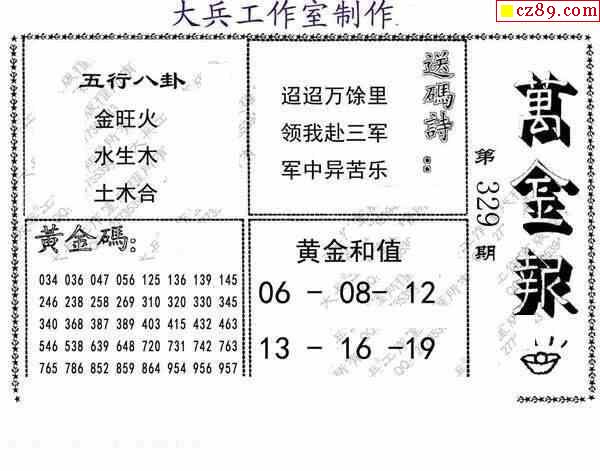 大兵工作室制作
cz89.com
萬金报
第329期
送碼詩：
迢迢万馀里
领我赴三军
军中异苦乐
五行八卦
金旺火
水生木
土木合
黄金碼：
034 036 047 056 125 136 139 145
246 238 258 269 310 320 330 345
340 368 387 389 403 415 432 463
546 538 639 648 720 731 742 763
765 786 852 859 864 954 956 957
黄金和值
06 - 08- 12
13 - 16 -19